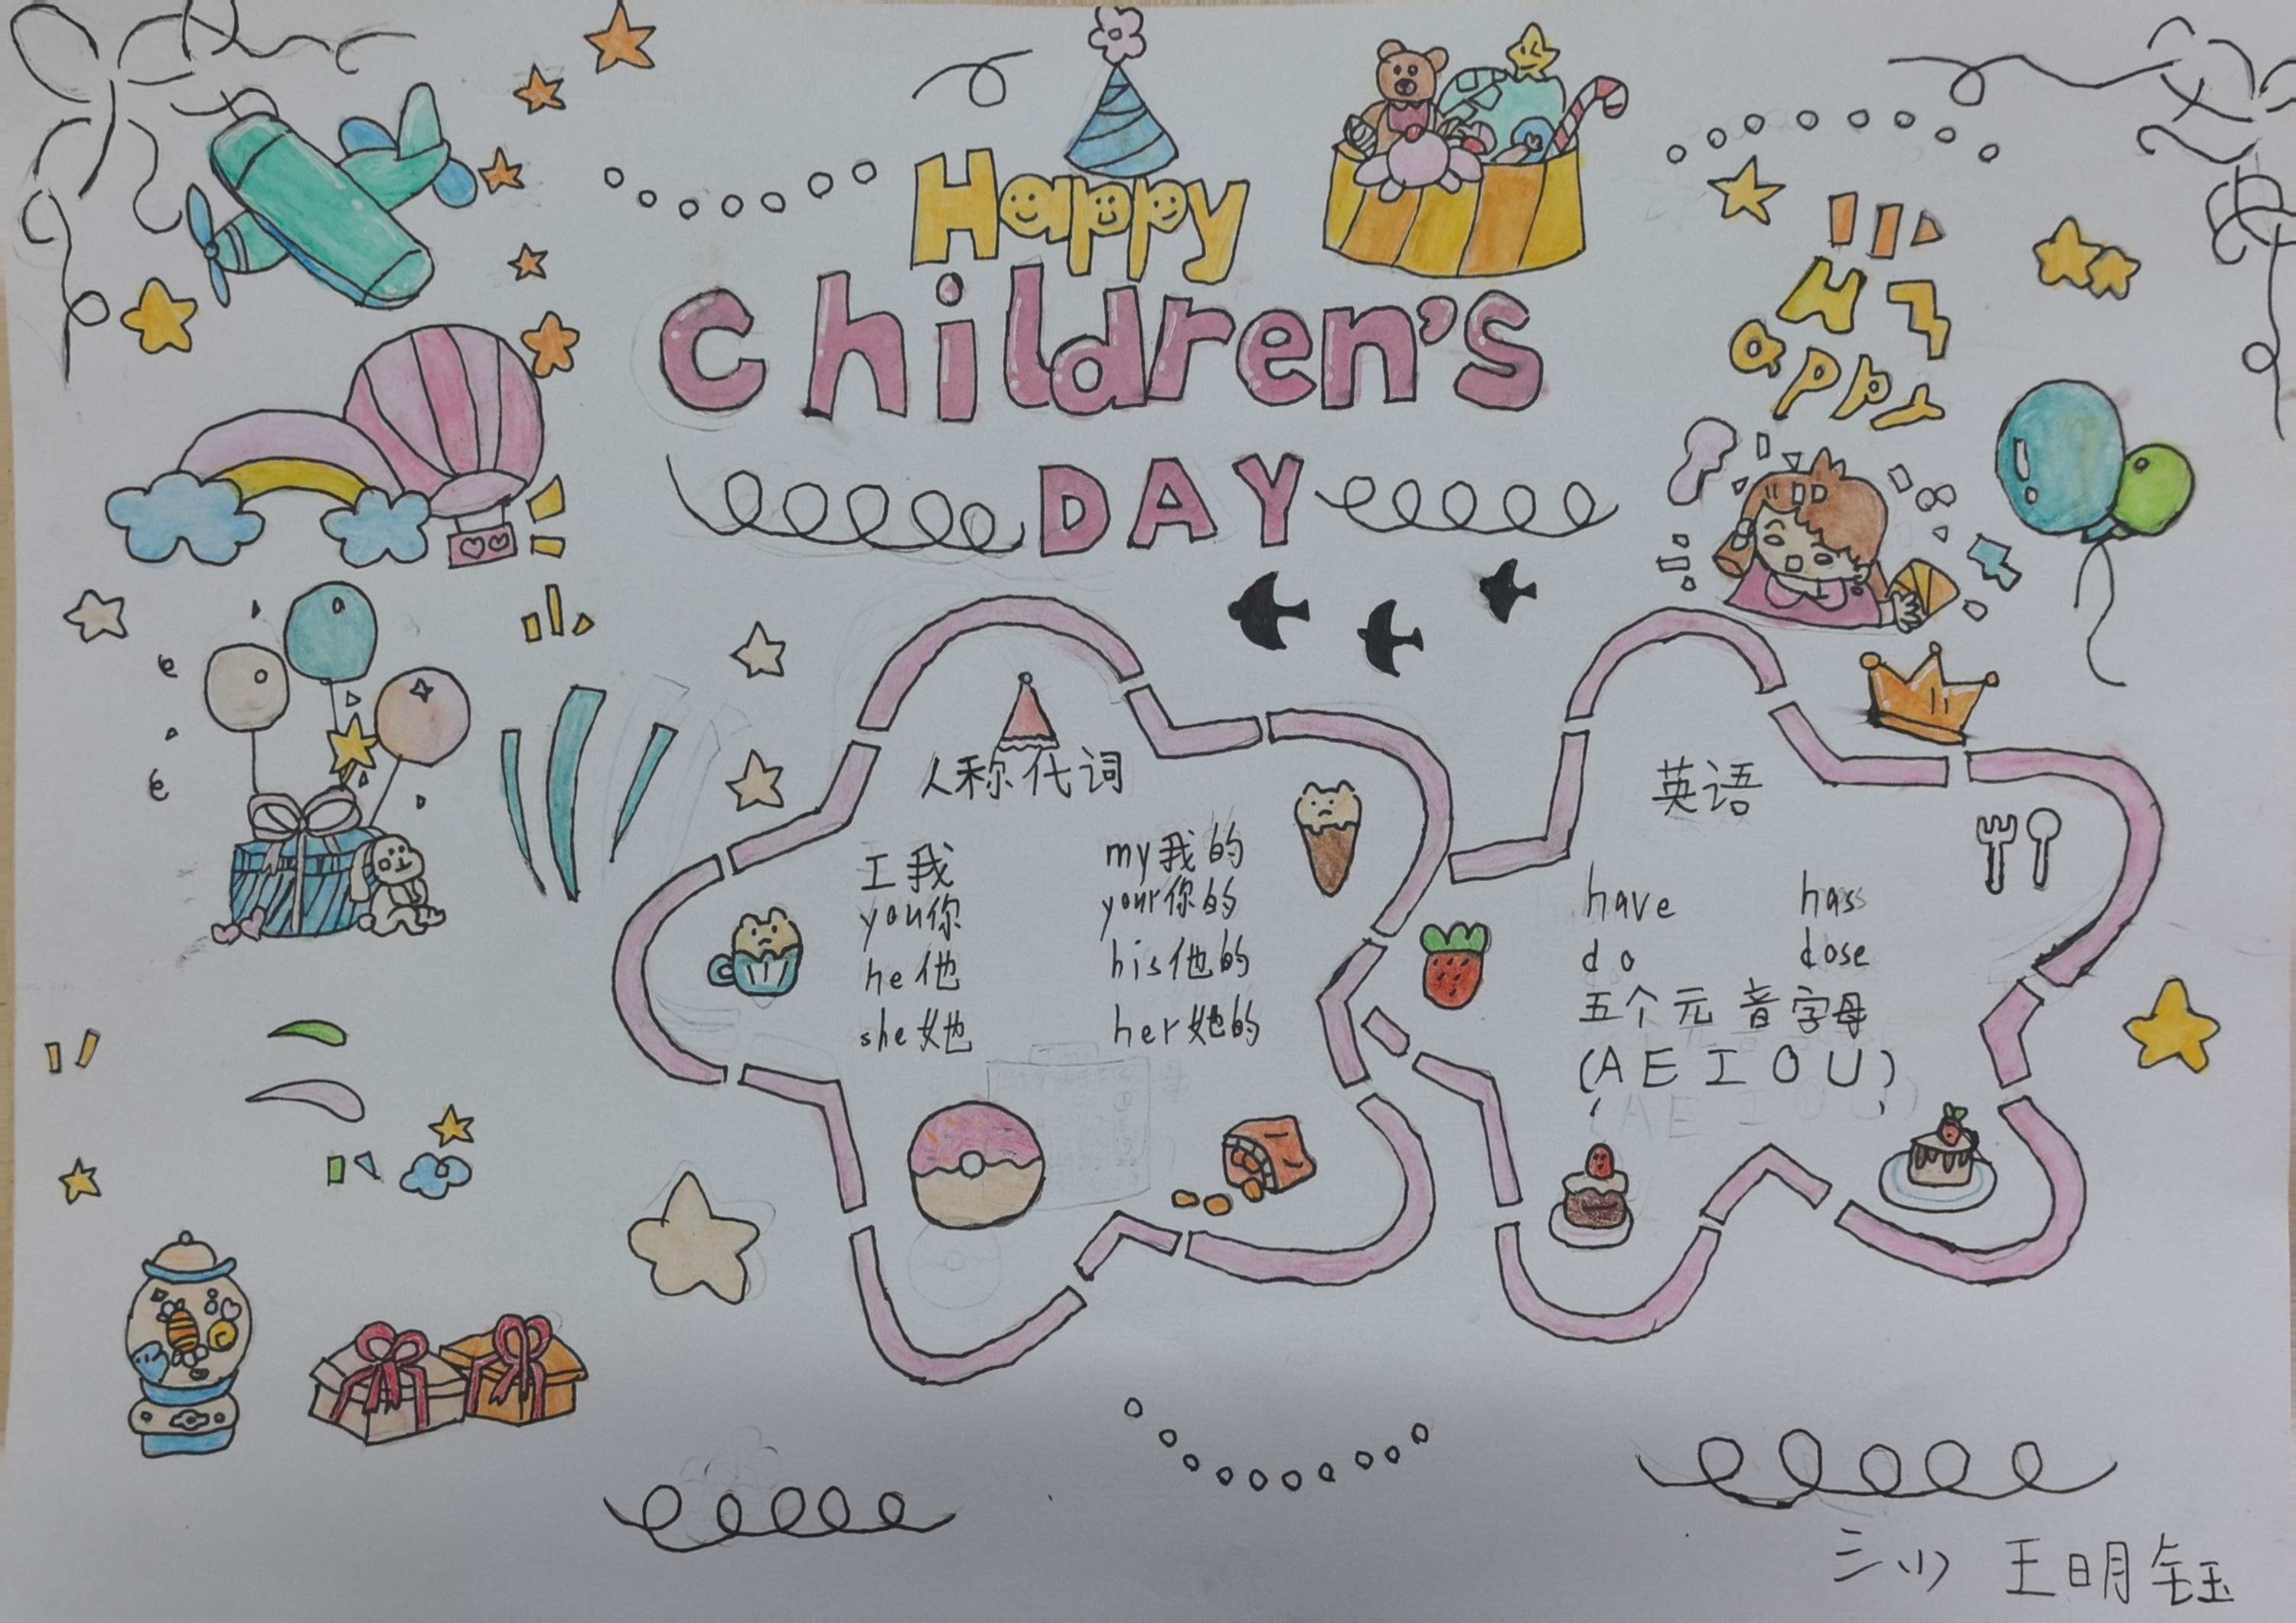 Happy
children's
DAY
Happy
人称代词
I我 my我的
you你 your你的
he他 his他的
she她 her她的
英语
have hass
do dose
五个元音字母
(A E I O U)
三(1) 王明钰